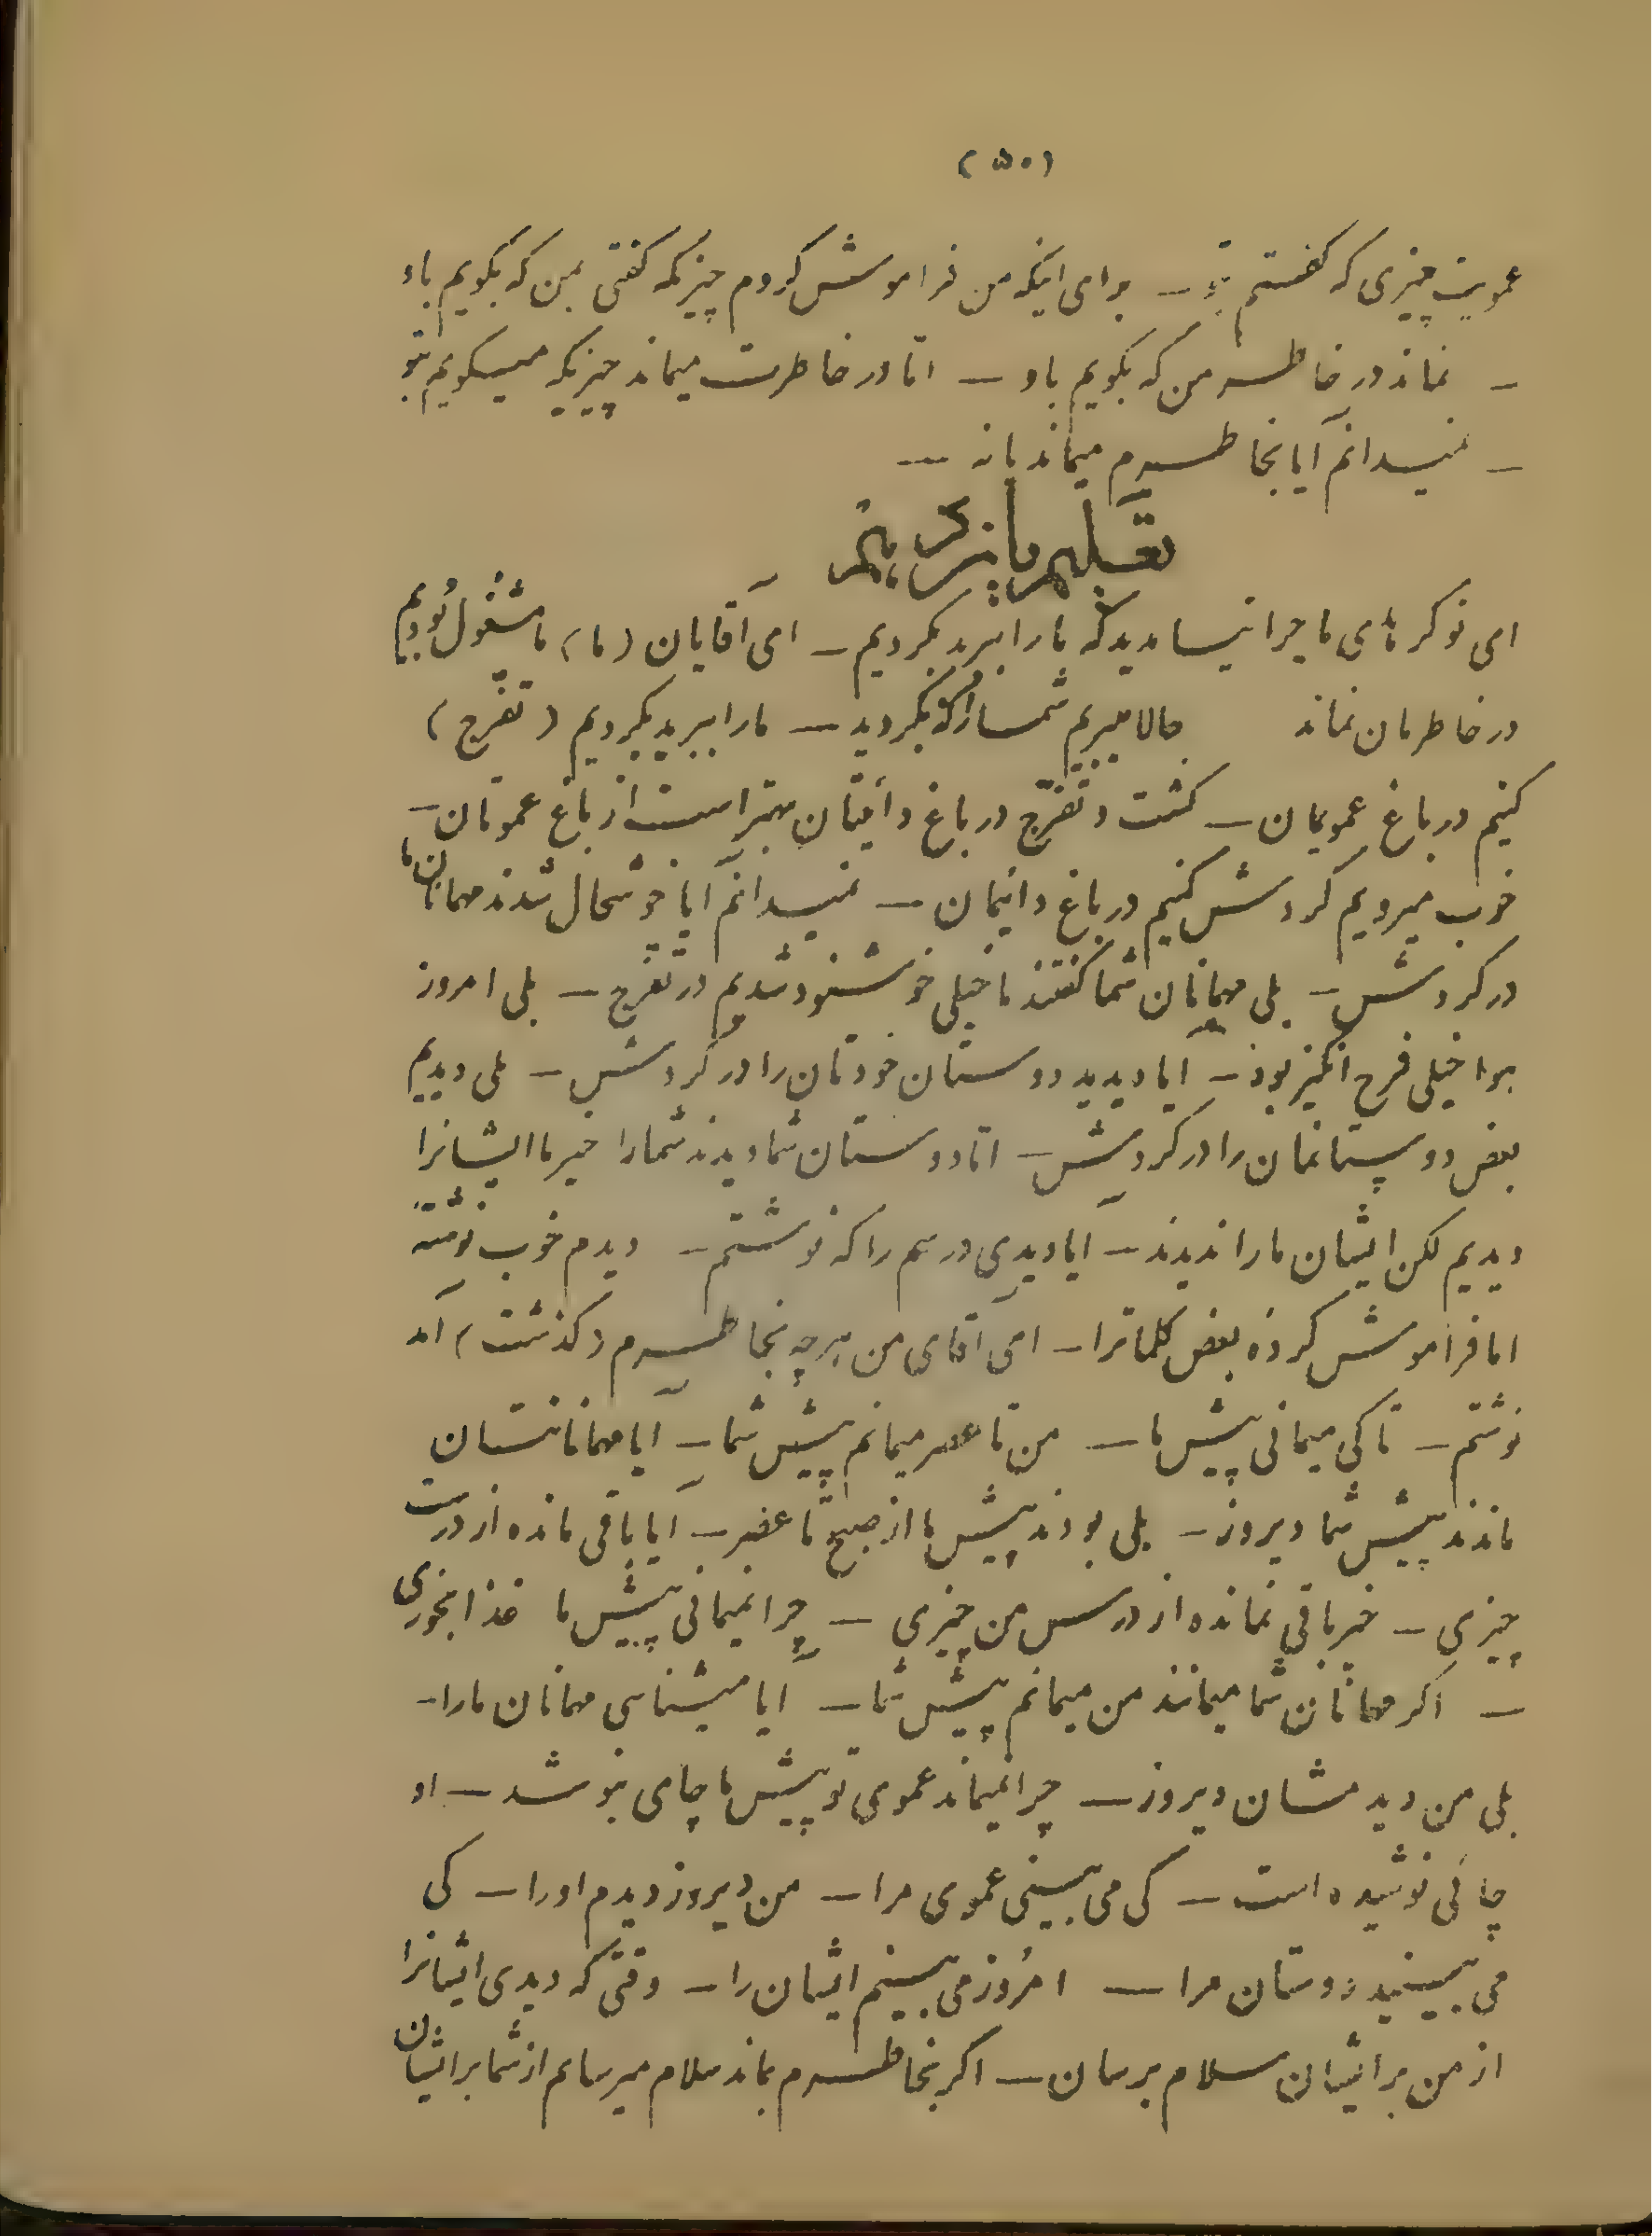 (۵۰)
عمویت چیزی که گفتم بتو — برای اینکه من فراموش کردم چیزیکه گفتی بمن که بگویم باو
— نماند در خاطر من که بگویم باو — اما در خاطرت میماند چیزیکه میگویم بتو
— نمیدانم آیا بخاطرم میماند یا نه —
تعلیم پانزدهم
ای نوکرهای ما چرا نیامدید که ما را ببرید بگردیم — ای آقایان (ما) ما مشغول بودیم
در خاطرمان نماند حالا میبریم شما را که بگردید — ما را ببرید بگردیم (تفرّج)
کنیم در باغ عمویمان — گشت و تفرّج در باغ دائیتان بهتر است از باغ عموتان —
خوب میرویم گردش کنیم در باغ دائیمان — نمیدانم آیا خوشحال شدند مهمانان ما
در گردش — بلی مهمانان شما گفتند ما خیلی خوشنود شدیم در تفرّج — بلی امروز
هوا خیلی فرح انگیز بود — آیا دیدید دوستان خودتان را در گردش — بلی دیدیم
بعض دوستانمان را در گردش — اما دوستان شما دیدند شما را خیر ما ایشانرا
دیدیم لکن ایشان ما را ندیدند — آیا دیدی درسم را که نوشتم — دیدم خوب نوشته
اما فراموش کرده بعض کلماترا — ای آقای من هرچه بخاطرم (گذشت) آمد
نوشتم — تا کی میمانی پیش ما — من تا عصر میمانم پیش شما — آیا مهمانانتان
ماندند پیش شما دیروز — بلی بودند پیش ما از صبح تا عصر — آیا باقی مانده از درست
چیزی — خیر باقی نمانده از درس من چیزی — چرا نمیمانی پیش ما غذا بخوری
— اگر مهمانان شما میمانند من میمانم پیش شما — آیا میشناسی مهمانان ما را —
بلی من دیدمشان دیروز — چرا نمیماند عموی تو پیش ما چای بنوشد — او
چائی نوشیده است — کی می بینی عموی مرا — من دیروز دیدم او را — کی
می بینید دوستان مرا — امروز می بینم ایشان را — وقتی که دیدی ایشانرا
از من برایشان سلام برسان — اگر بخاطرم بماند سلام میرسانم از شما برایشان